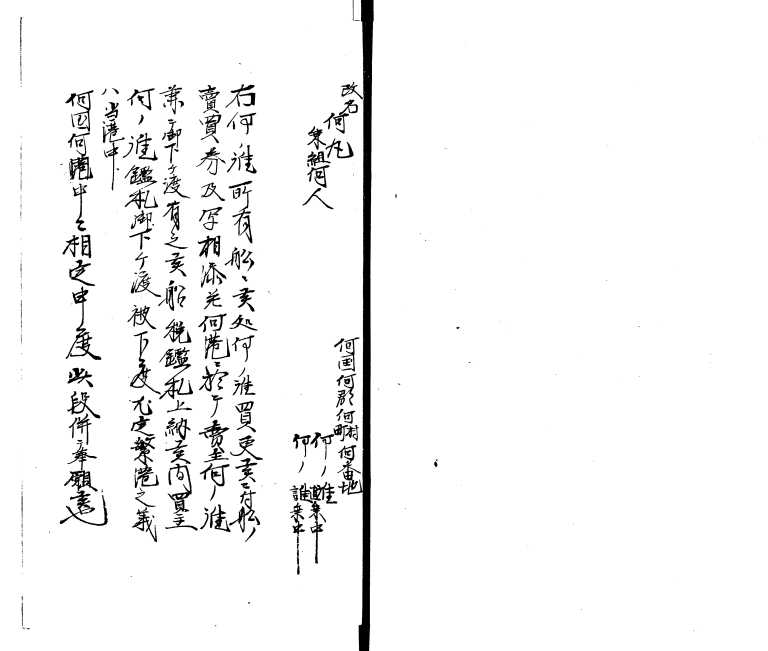 改名
何丸
乗組何人
何国何郡何町村何番地
何ノ誰
何ノ誰
右何ノ誰所有船ニ候処何ノ誰買更候ニ付船ノ
賣買券及写相添先何港ニ於テ賣主何ノ誰
兼テ御下ケ渡有之候船税鑑札上納候間買主
何ノ誰鑑札御下ケ渡被下度尤定繋港之義
ハ当港中
何国何港中ニ相定申度此段併奉願候也